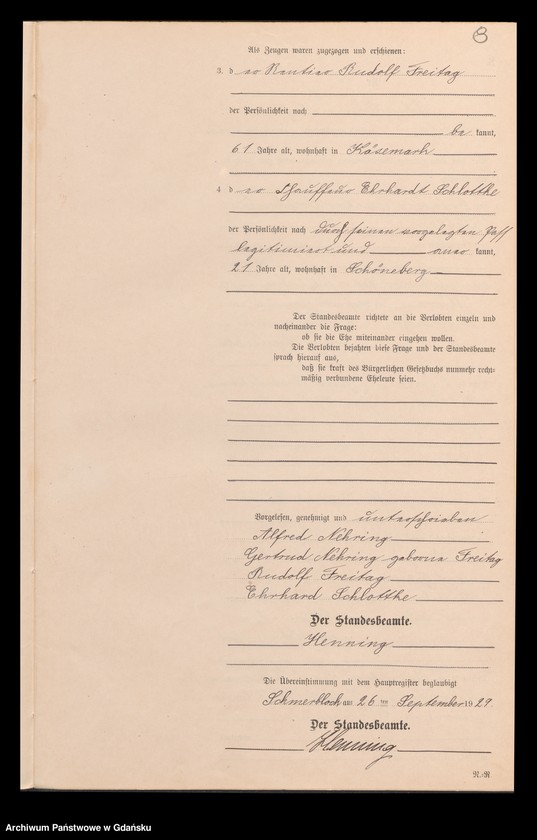 8
Als Zeugen waren zugezogen und erschienen:
3. d er Rentier Rudolf Freitag
der Persönlichkeit nach
be kannt,
61 Jahre alt, wohnhaft in Käsemark
4 d er Chauffeur Ehrhardt Schlottke
der Persönlichkeit nach durch seinen vorgelegten Paß
legitimiert und aner kannt,
21 Jahre alt, wohnhaft in Schöneberg
Der Standesbeamte richtete an die Verlobten einzeln und
nacheinander die Frage:
ob sie die Ehe miteinander eingehen wollen.
Die Verlobten bejahten diese Frage und der Standesbeamte
sprach hierauf aus,
daß sie kraft des Bürgerlichen Gesetzbuchs nunmehr recht-
mäßig verbundene Eheleute seien.
Vorgelesen, genehmigt und unterschrieben
Alfred Nehring
Gertrud Nehring geborene Freitag
Rudolf Freitag
Ehrhard Schlottke
Der Standesbeamte.
Henning
Die Übereinstimmung mit dem Hauptregister beglaubigt
Schmerblock am 26 ten September 19 29.
Der Standesbeamte.
Henning
R./R
Archiwum Państwowe w Gdańsku